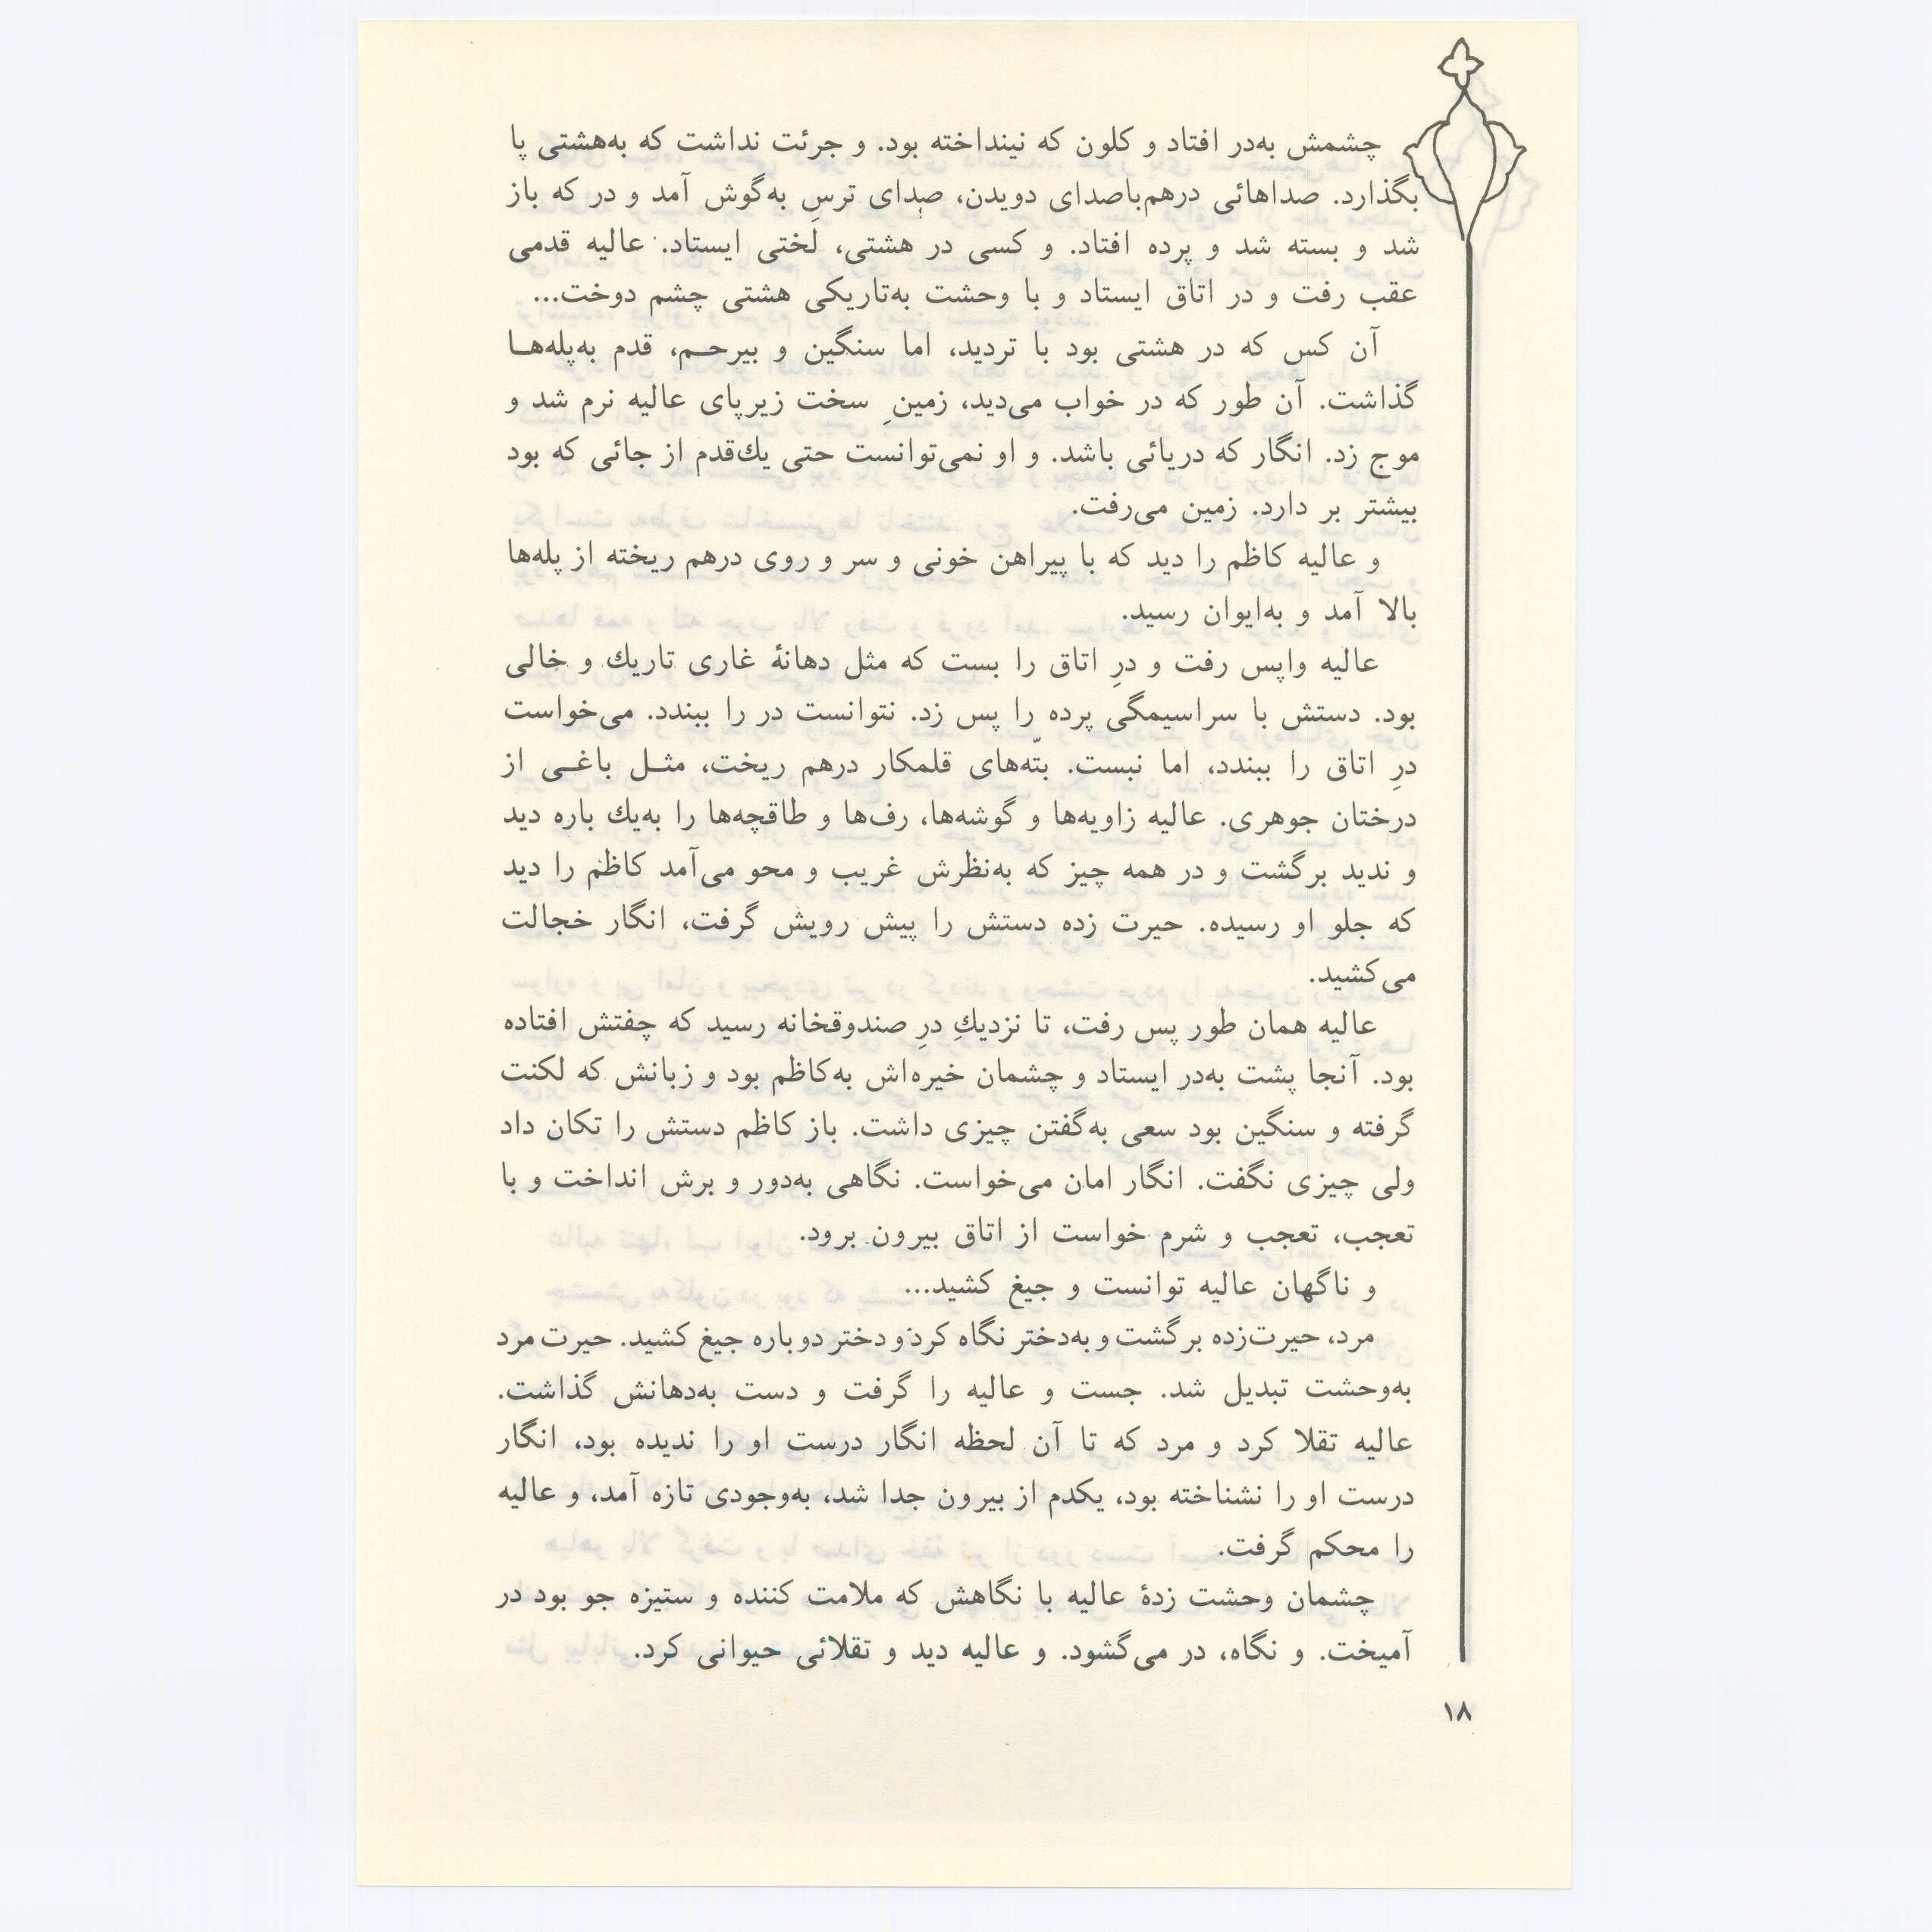 چشمش به‌در افتاد و کلون که نینداخته بود. و جرئت نداشت که به‌هشتی پا
بگذارد. صداهائی درهم‌باصدای دویدن، صدای ترسِ به‌گوش آمد و در که باز
شد و بسته شد و پرده افتاد. و کسی در هشتی، لَختی ایستاد. عالیه قدمی
عقب رفت و در اتاق ایستاد و با وحشت به‌تاریکی هشتی چشم دوخت...
آن کس که در هشتی بود با تردید، اما سنگین و بیرحـم، قدم به‌پله‌هـا
گذاشت. آن طور که در خواب می‌دید، زمینِ سخت زیرپای عالیه نرم شد و
موج زد. انگار که دریائی باشد. و او نمی‌توانست حتی یك‌قدم از جائی که بود
بیشتر بر دارد. زمین می‌رفت.
و عالیه کاظم را دید که با پیراهن خونی و سر و روی درهم ریخته از پله‌ها
بالا آمد و به‌ایوان رسید.
عالیه واپس رفت و درِ اتاق را بست که مثل دهانهٔ غاری تاریك و خالی
بود. دستش با سراسیمگی پرده را پس زد. نتوانست در را ببندد. می‌خواست
درِ اتاق را ببندد، اما نبست. بتّه‌های قلمکار درهم ریخت، مثـل باغـی از
درختان جوهری. عالیه زاویه‌ها و گوشه‌ها، رف‌ها و طاقچه‌ها را به‌یك باره دید
و ندید برگشت و در همه چیز که به‌نظرش غریب و محو می‌آمد کاظم را دید
که جلو او رسیده. حیرت زده دستش را پیش رویش گرفت، انگار خجالت
می‌کشید.
عالیه همان طور پس رفت، تا نزدیكِ درِ صندوقخانه رسید که چفتش افتاده
بود. آنجا پشت به‌در ایستاد و چشمان خیره‌اش به‌کاظم بود و زبانش که لکنت
گرفته و سنگین بود سعی به‌گفتن چیزی داشت. باز کاظم دستش را تکان داد
ولی چیزی نگفت. انگار امان می‌خواست. نگاهی به‌دور و برش انداخت و با
تعجب، تعجب و شرم خواست از اتاق بیرون برود.
و ناگهان عالیه توانست و جیغ کشید...
مرد، حیرت‌زده برگشت و به‌دختر نگاه کرد و دختر دوباره جیغ کشید. حیرت مرد
به‌وحشت تبدیل شد. جست و عالیه را گرفت و دست به‌دهانش گذاشت.
عالیه تقلا کرد و مرد که تا آن لحظه انگار درست او را ندیده بود، انگار
درست او را نشناخته بود، یکدم از بیرون جدا شد، به‌وجودی تازه آمد، و عالیه
را محکم گرفت.
چشمان وحشت زدهٔ عالیه با نگاهش که ملامت کننده و ستیزه جو بود در
آمیخت. و نگاه، در می‌گشود. و عالیه دید و تقلائی حیوانی کرد.
۱۸